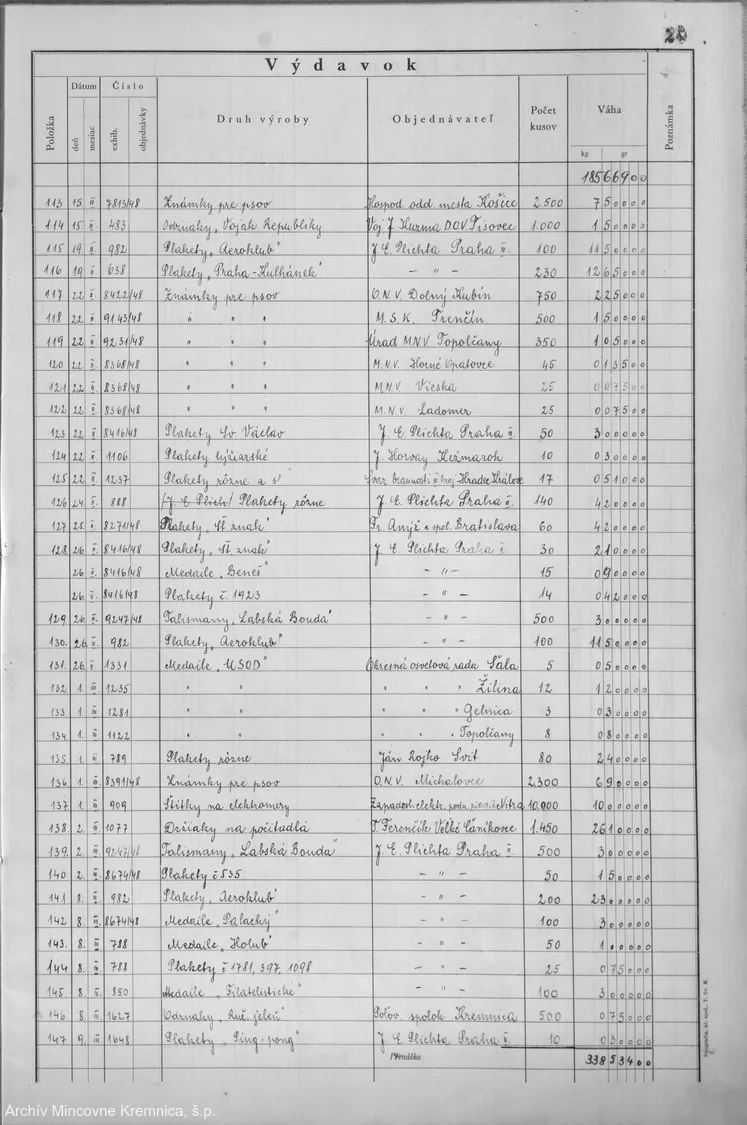 28
Výdavok
Položka | Dátum | Číslo | Druh výroby | Objednávateľ | Počet kusov | Váha | Poznámka
deň | mesiac | exhib. | objednávky | kg | gr
185 66900
113 15 II 7813/48 Známky pre psov Hospod. odd. mesta Košice 2.500 7 50000
114 15 II 483 Odznaky „Vojak Republiky Voj. J. Hurma D.O.V. Tisovec 1.000 1 50000
115 19 II 982 Plakety „Aeroklub" J. E. Plichta Praha II. 100 11 50000
116 19 II 658 Plakety „Praha-Kulhánek" – " – 230 12 65000
117 22 II. 8422/48 Známky pre psov O.N.V. Dolný Kubín 750 2 25000
118 22 II. 9143/48 " " " M.S.K. Trenčín 500 1 50000
119 22 II 9231/48 " " " Úrad M.N.V. Topolčany 350 1 05000
120 22 II. 8368/48 " " " M.N.V. Horné Opatovce 45 0 13500
121 22 II 8368/48 " " " M.N.V. Vieska 25 0 07500
122 22 II 8368/48 " " " M.N.V. Ladomer 25 0 07500
123 22 II 8416/48 Plakety Sv. Václav J. E. Plichta Praha II. 50 3 00000
124 22 II 1106 Plakety lyžiarské J. Horvay Kežmarok 10 0 30000
125 22 II 1237 Plakety rôzne Hradec Králové 17 0 51000
126 24 II. 888 /J. E. Plich/ Plakety rôzne J. E. Plichta Praha II. 140 4 20000
127 25 II. 8271/48 Plakety „Št. znak" Fr. Anýž a spol. Bratislava 60 4 20000
128 26 II. 8416/48 Plakety „Št. znak" J. E. Plichta Praha II. 30 2 10000
26 II. 8416/48 Medaile „Beneš" – " – 15 0 90000
26 II. 8416/48 Plakety č. 1923 – " – 14 0 42000
129 26 II. 9247/48 Talismany „Labská Bouda" – " – 500 3 00000
130. 26 II. 982 Plakety „Aeroklub" – " – 100 11 50000
131. 26 II. 1331 Medaile „USOD" Okresná osvetová rada Šala 5 0 50000
132 1. III 1235 " " " " Žilina 12 1 20000
133 1. III 1281 " " " " Gelnica 3 0 30000
134 1. III 1122 " " " " Topolčany 8 0 80000
135. 1. III. 789 Plakety rôzne Ján Rojko Svit 80 2 40000
136 1. III 8391/48 Známky pre psov O.N.V. Michalovce 2.300 6 90000
137. 1. III 909 Štítky na elektromery Západosl. elektr. podn. Nitra 10.000 10 00000
138. 2. III. 1077 Držiaky na počítadlá 1.450 26 10000
139. 2. III 9247/48 Talismany „Labská Bouda" J. E. Plichta Praha II. 500 3 00000
140 2. III 8674/48 Plakety č 535 – " – 50 1 50000
141 8. III. 982 Plakety „Aeroklub" – " – 200 23 00000
142 8. III. 8674/48 Medaile „Palacký" – " – 100 3 00000
143. 8. III 788 Medaile „Holub" – " – 50 1 00000
144 8. III 788 Plakety č 1781, 397, 1098 – " – 25 0 75000
145 8. III. 850 Medaile „Filatelistické" – " – 100 3 00000
146 8 III 1627 Odznaky „Ruč. jeleň" Poľov. spolok Kremnica 500 0 75000
147 9. III 1648 Plakety „Ping-pong" J. E. Plichta Praha II. 10 0 30000
Prenáška 338 53400
Archív Mincovne Kremnica, š.p.